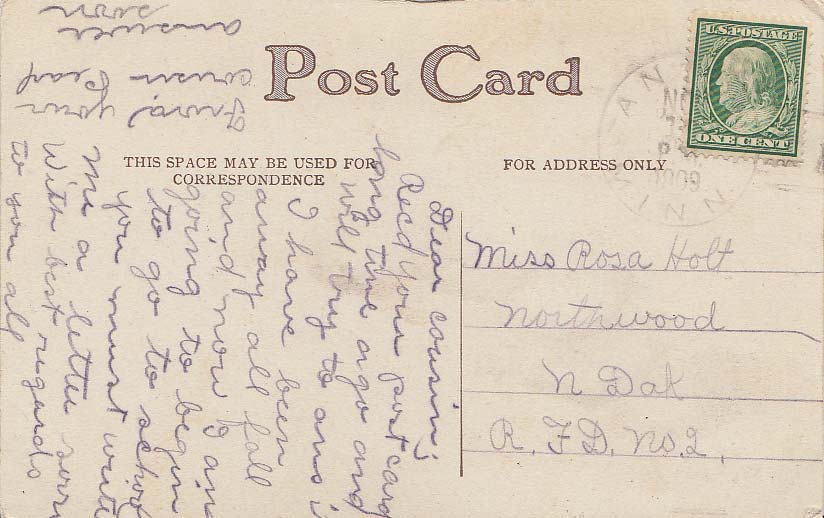 Post Card
THIS SPACE MAY BE USED FOR
CORRESPONDENCE
FOR ADDRESS ONLY
U.S. POSTAGE
ONE CENT
1909
Miss Rosa Holt
Northwood
N Dak
R. F. D. No. 2.
Dear cousin;
Recd your post card
long time ago and
will try to ans
I have been
away all fall
and now I am
going to begin
to go to school
you must write
me a letter soon
With best regards
to you all
From your
cousin Pearl
answer
soon